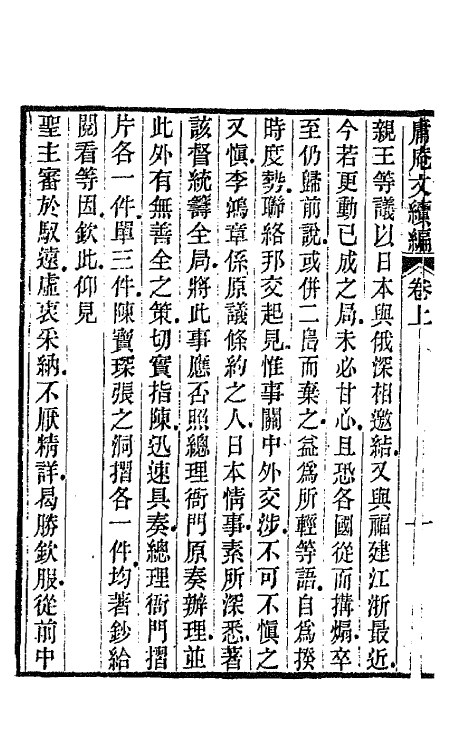 庸庵文續編 卷上 一
親王等議以日本與俄深相邀結又與福建江浙最近
今若更動已成之局未必甘心且恐各國從而搆煽卒
至仍歸前說或併二島而棄之益爲所輕等語自爲揆
時度勢聯絡邦交起見惟事關中外交涉不可不愼之
又愼李鴻章係原議條約之人日本情事素所深悉著
該督統籌全局將此事應否照總理衙門原奏辦理並
此外有無善全之策切實指陳迅速具奏總理衙門摺
片各一件單三件陳寶琛張之洞摺各一件均著鈔給
閱看等因欽此仰見
聖主審於馭遠虛衷采納不厭精詳曷勝欽服從前中